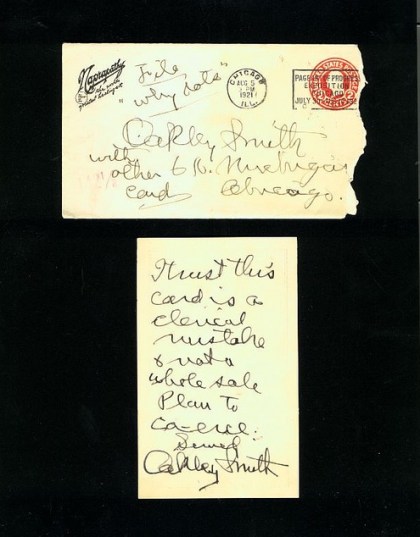 Naprapathy
File
"why dots"
CHICAGO
AUG 5
PM
1921
ILL.
UNITED STATES
PAGEANT OF PROGRESS
EXPOSITION
CHICAGO
JULY 30
Oakley Smith
with
other 6 N. Michigan
card Chicago.
I trust this
card is a
clerical
mistake
& not a
whole sale
Plan To
co-erce.
Oakley Smith